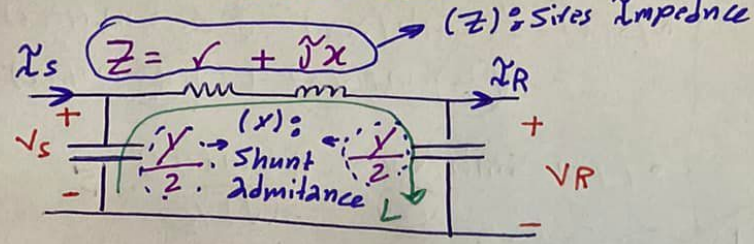 (Z): Sires Impednce
Z = r + jx
Is
IR
+
Vs
-
Y/2
(X):
Shunt
admitance
Y/2
L
+
VR
-